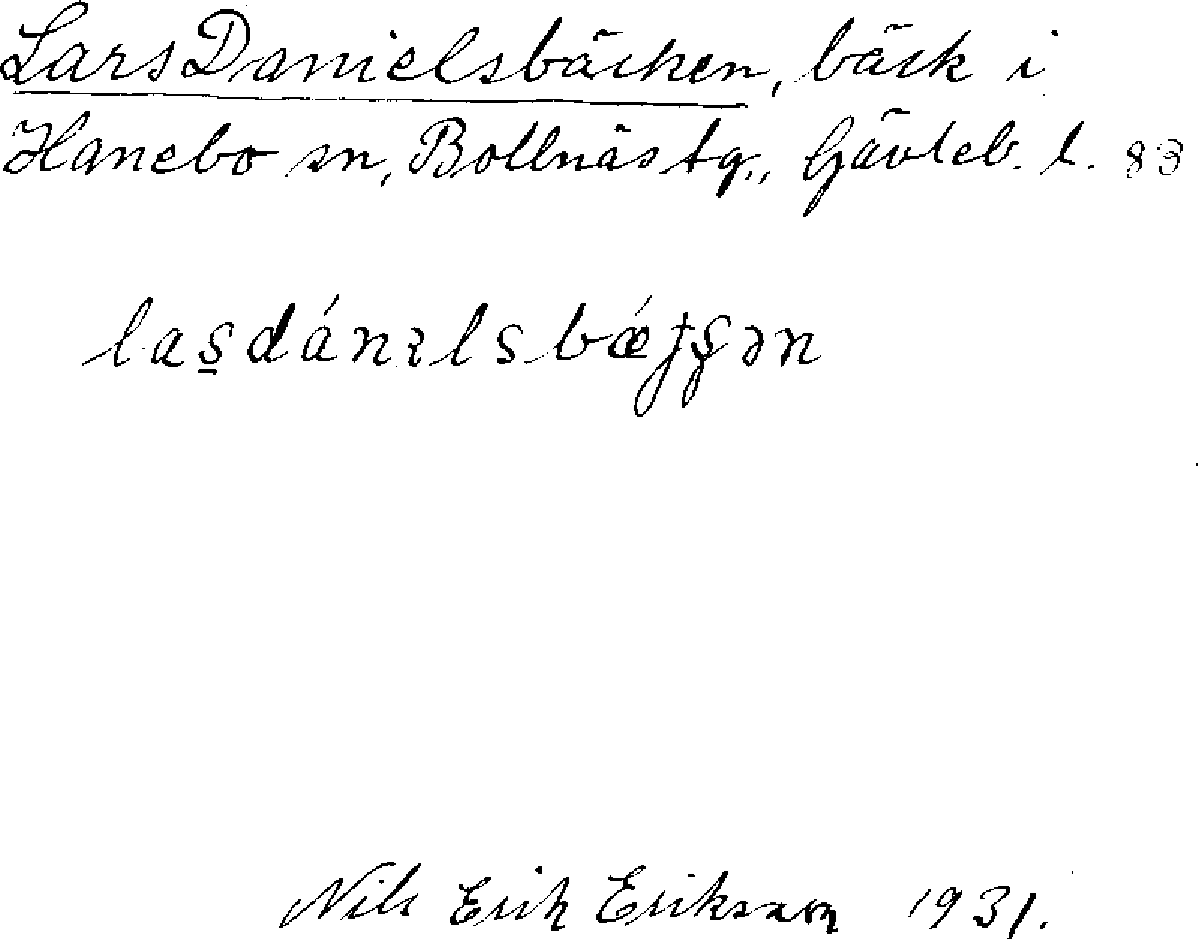 Lars Danielsbäcken, bäck i
Hanebo sn, Bollnäs tg., Gävleb. l. 83
Nils Erik Eriksson 1931.